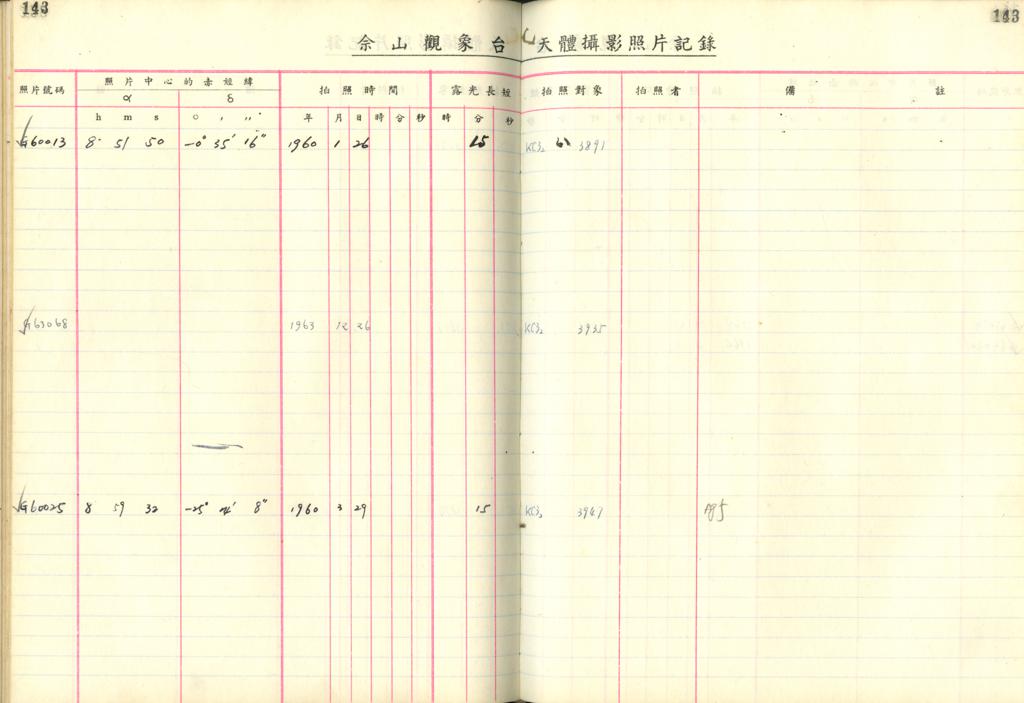 143
143
佘山觀象台 天體攝影照片記錄
照片號碼 照片中心的赤經緯 拍照時間 露光長短 拍照對象 拍照者 備註
α δ
h m s ° ′ ″ 年 月 日 時 分 秒 時 分 秒
G60013 8 51 50 -0° 35′ 16″ 1960 1 26 15 3891
G63068 1963 12 26 3935
G60025 8 59 32 -25° 8″ 1960 3 29 15